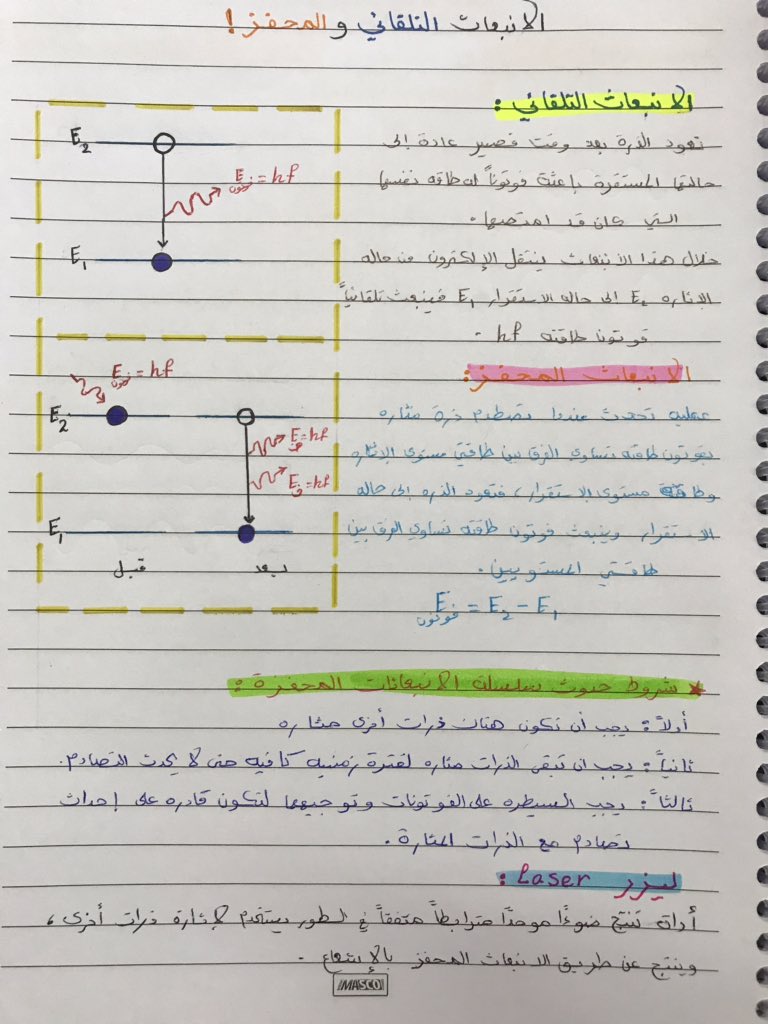 الانبعاث التلقائي والمحفز !
الانبعاث التلقائي :
تعود الذرة بعد وقت قصير عادة إلى
حالتها المستقرة باعثة فوتوناً له طاقه نفسها
التي كان قد امتصها .
خلال هذا الانبعاث ينتقل الإلكترون من حاله
الاثاره E2 الى حاله الاستقرار E1 فينبعث تلقائياً
فوتونا طاقته hf .
E2
E فوتون = hf
E1
الانبعاث المحفز :
عمليه تحدث عندما تصطدم ذرة مثاره
بفوتون طاقته تساوي الفرق بين طاقتي مستوى الإثاره
وطاقة مستوى الاستقرار ، فتعود الذره إلى حاله
الاستقرار وينبعث فوتون طاقته تساوي الفرق بين
طاقتي المستويين .
E فوتون = E2 - E1
E فوتون = hf
E2
E ف = hf
E ف = hf
E1
قبل بعد
* شروط حدوث سلسله الانبعاثات المحفزة :
أولاً : يجب أن تكون هناك ذرات أخرى مثاره
ثانياً : يجب ان تبقى الذرات مثاره لفترة زمنيه كافيه حتى لا يحدث التصادم .
ثالثاً : يجب السيطره على الفوتونات وتوجيهها لتكون قادره على إحداث
تصادم مع الذرات المثارة .
ليزر Laser :
أداة تنتج ضوءًا موحدًا مترابطاً متفقاً في الطور يستخدم لإثارة ذرات أخرى ،
وينتج عن طريق الانبعاث المحفز بالإشعاع .
MASCO